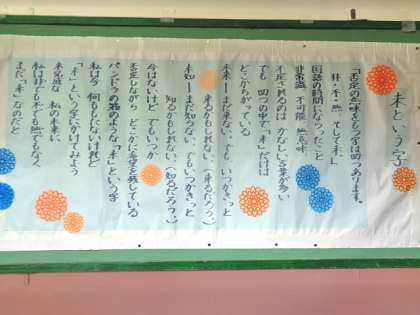 未という字
「否定の意味をもつ字は四つあります。
非・不・無 そして未」
国語の時間にならったこと
非常識 不可能 無意味
否定されるのは かなしい言葉が多い
でも 四つの中で「未」だけは
どこかちがっている
未来―まだ来ない、でもいつかきっと
来るかもしれない、(来るだろう。)
未知―まだ知らない、でもいつかきっと
知るかもしれない、(知るだろう。)
今はないけど でもいつか
否定しながら どこかに希望を残している
パンドラの箱のような「未」という字
私は今 何ももたないけれど
「未」という字にかけてみよう
未完成な 私の未来に
私は非でも不でも無でもなく
まだ「未」なのだと